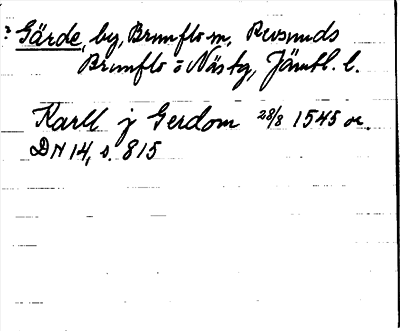 ? Gärde, by, Brunflo sn, Revsunds
Brunflo o Näs tg, Jämtl. l.
Karll j Gerdom 28/8 1545 or.
DN 14, s. 815